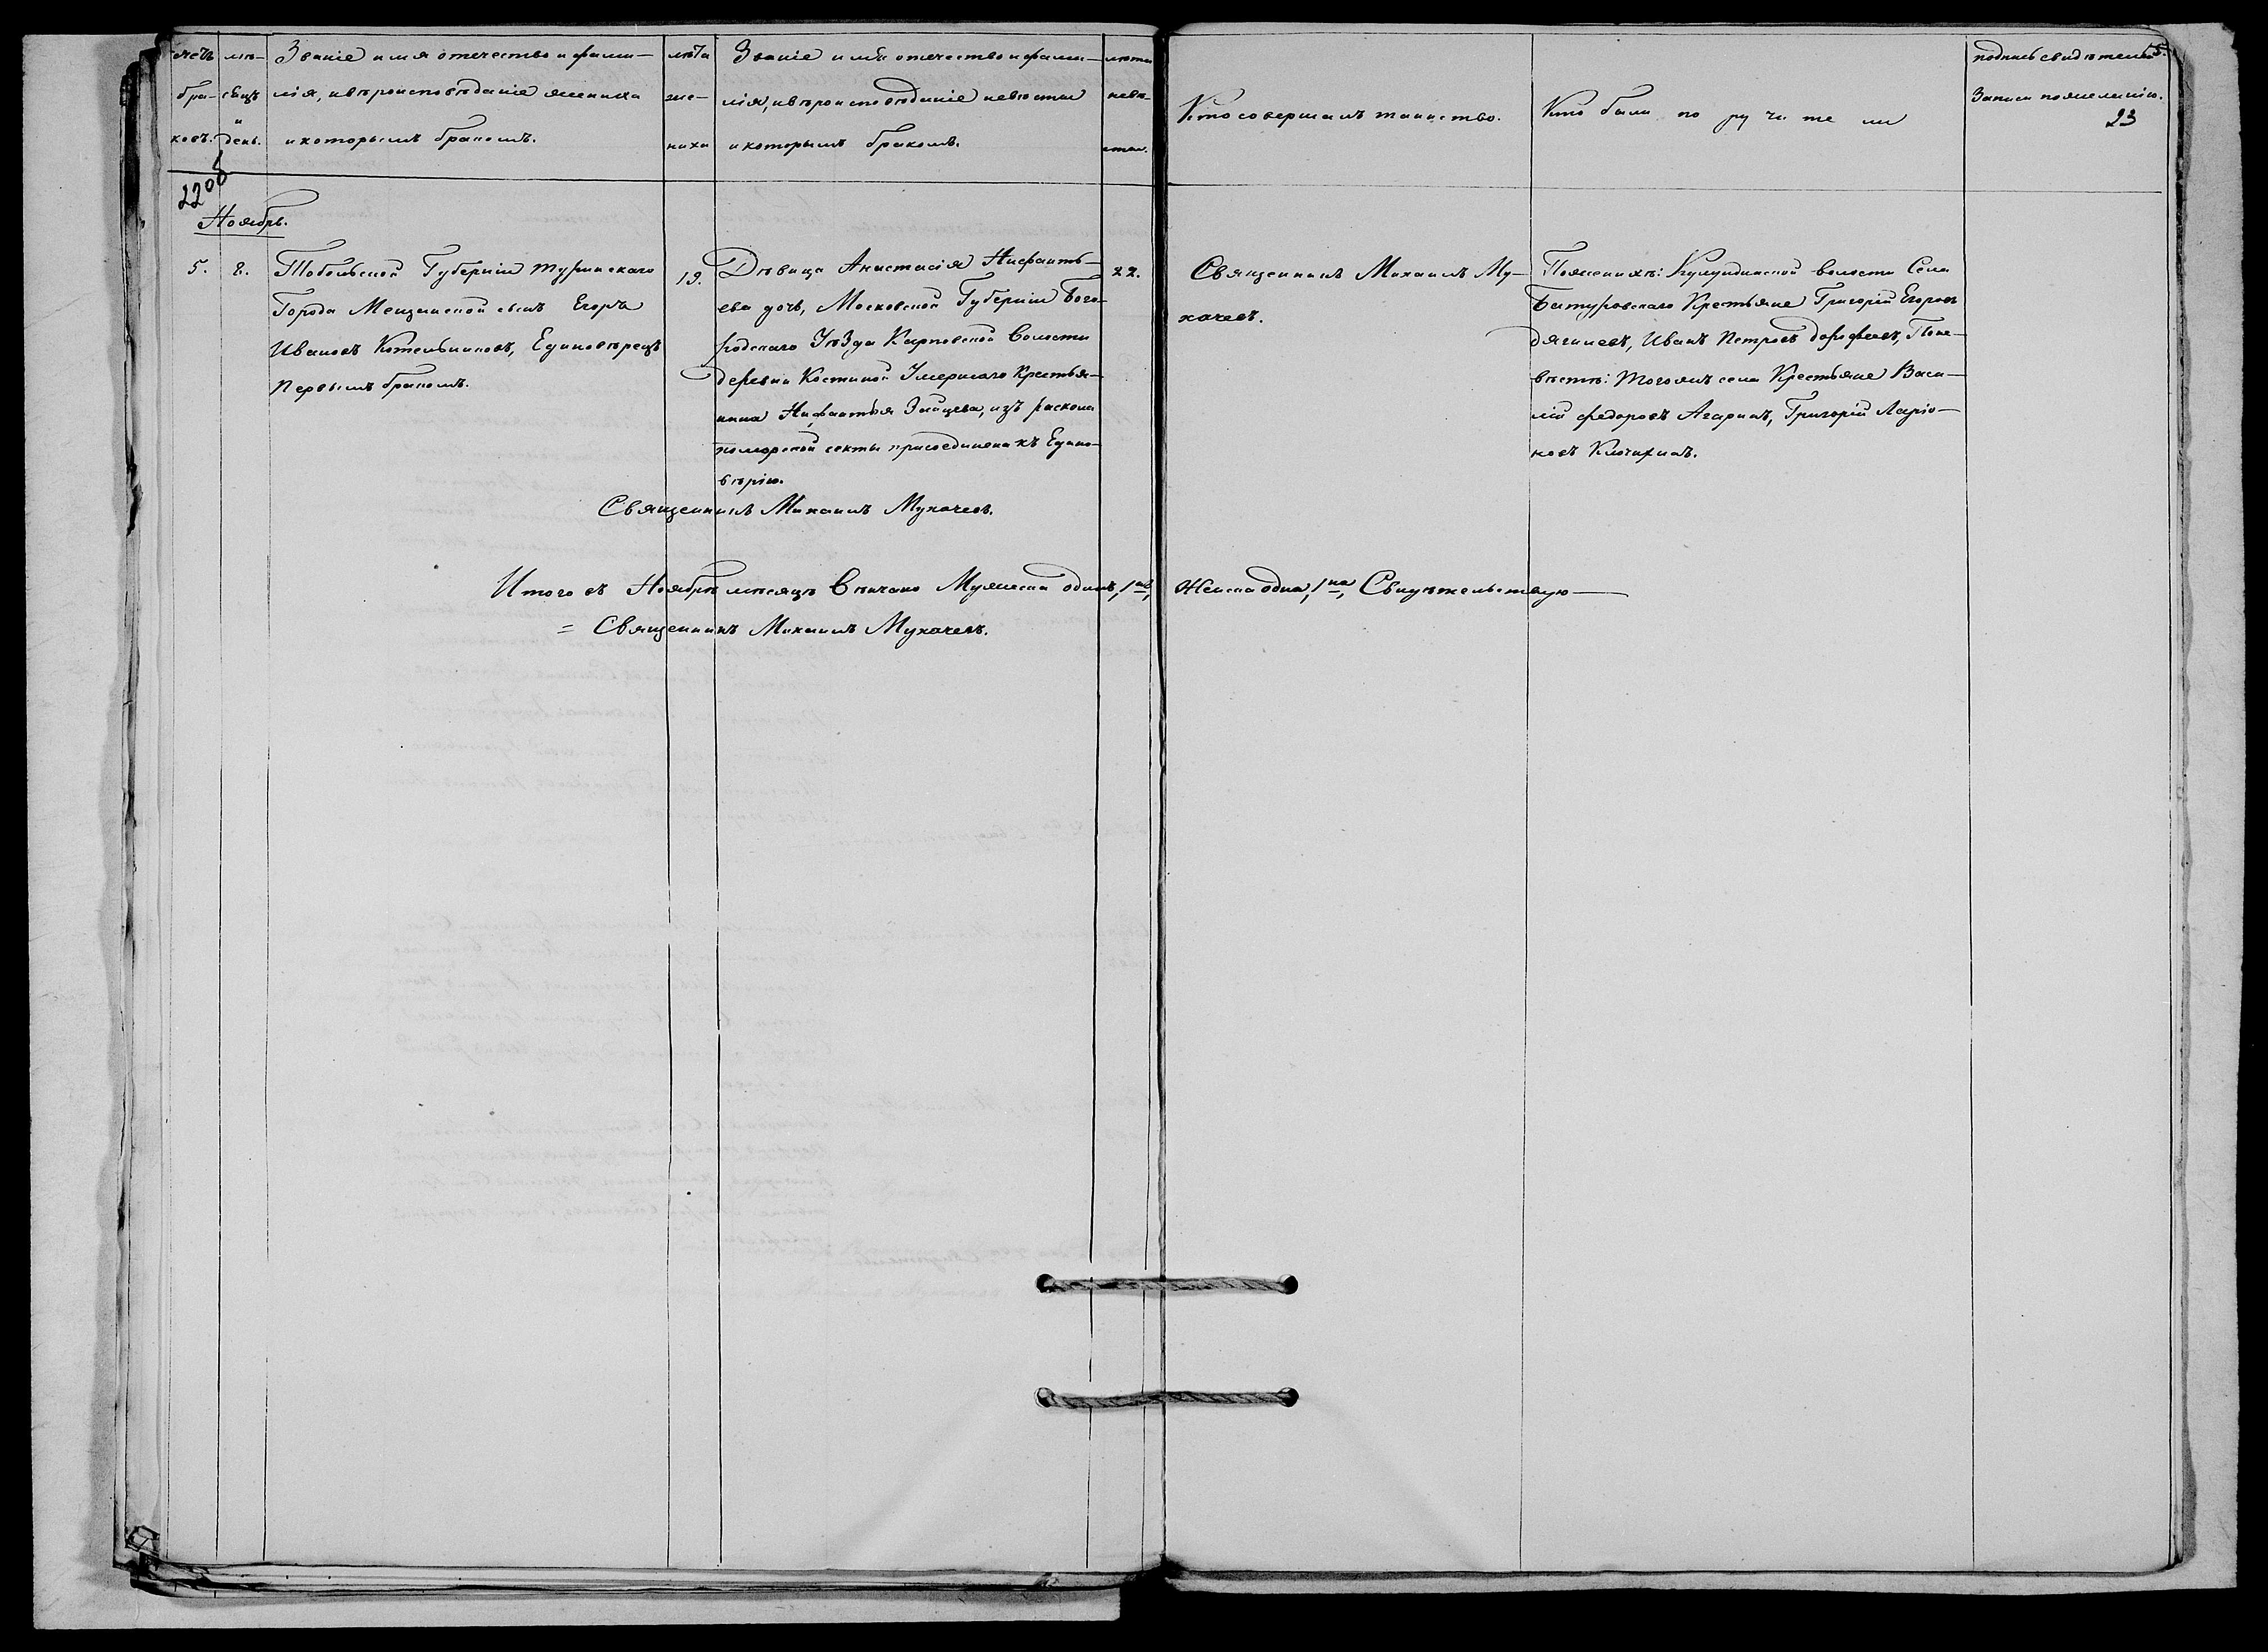 счетъ бра-ковъ.
мѣ-сяцъ и день.
Званіе имя отечество и фами-
лія, и вѣроисповѣданіе жениха
и которымъ бракомъ.
лѣта же-ниха
Званіе имя отечество и фами-
лія, и вѣроисповѣданіе невѣсты
и которымъ бракомъ.
лѣта невѣ-сты.
Кто совершалъ таинство.
Кто были по ру чи те ли
подпись свидѣтелей
записи по желанію.
55.
23
2208
Ноябрь.
5.
8.
Тобольской Губерніи Туринскаго
Города Мещанской сынъ Егоръ
Ивановъ Котельниковъ, Единовѣрецъ
Первымъ бракомъ.
19.
Дѣвица Анастасія Нифантъ-
ева дочь, Московской Губерніи Бого-
родскаго Уѣзда Карповской волости
деревни Костиной Умершаго Крестья-
нина Нифантья Зайцева, изъ раскола
поморской секты присоединена къ Едино-
вѣрію.
22.
Священникъ Михаилъ Му-
хачевъ.
По женихѣ: Кулундинской волости Села
Батуровскаго Крестьяне Григорій Егоровъ
Дягилевъ, Иванъ Петровъ Дорофеевъ, По не-
вѣстѣ: того жъ села Крестьяне Васи-
лій Федоровъ Агаринъ, Григорій Ларіо-
новъ Ключихинъ.
Священникъ Михаилъ Мухачевъ.
Итого въ Ноябрѣ мѣсяцѣ Вѣнчано Мужеска одинъ, 1нъ, Женска одна, 1на, Свидѣтельствую
= Священникъ Михаилъ Мухачевъ.